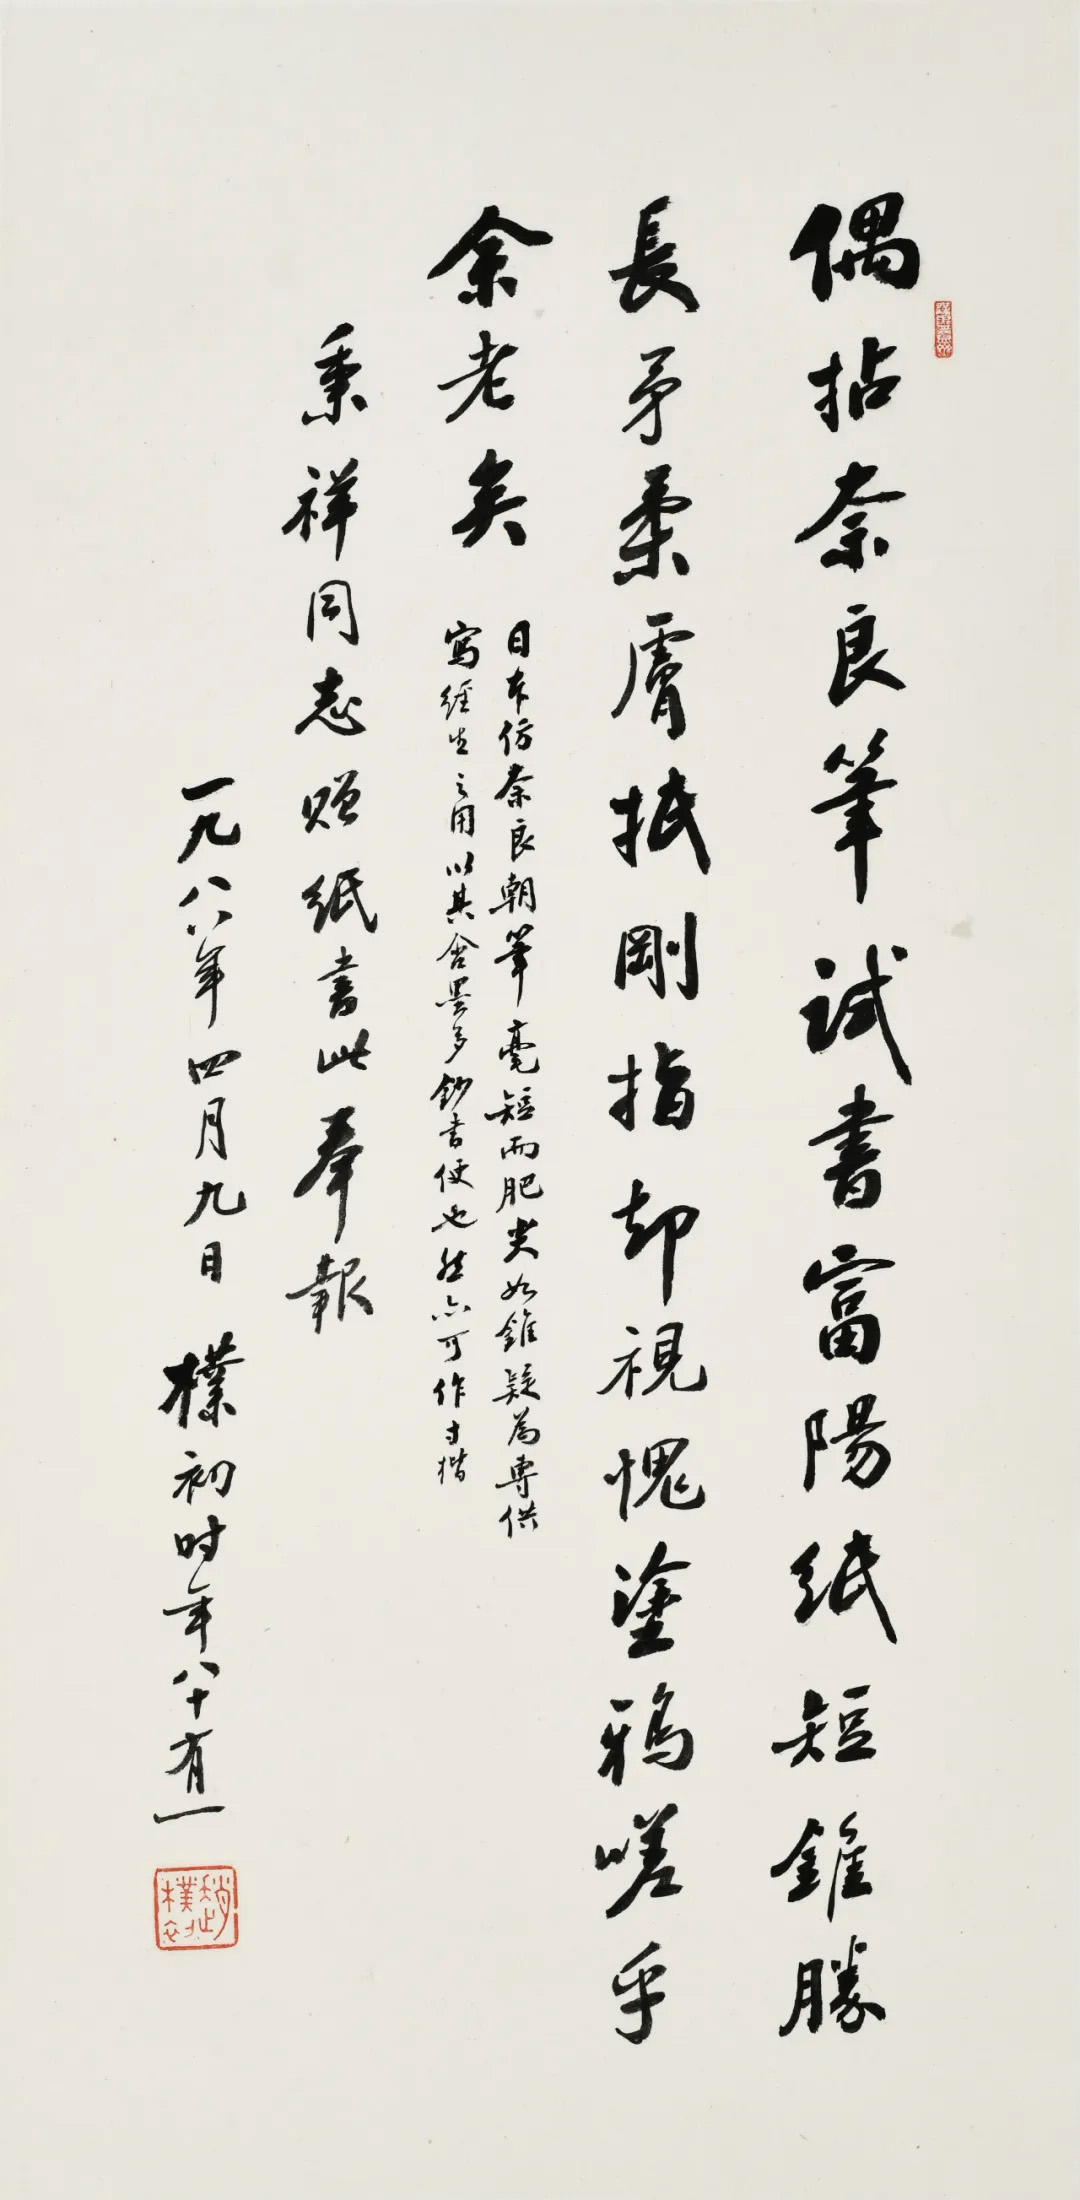 偶拈奈良筆試書富陽紙短錐勝
長矛柔膚抵剛指却視愧塗鴉嗟乎
余老矣
日本仿奈良朝筆毫短而肥尖如錐疑為專供
寫經生之用以其含墨多鈔書便也然亦可作寸楷
秉祥同志贈紙書此奉報
一九八八年四月九日 樸初时年八十有一
趙樸初